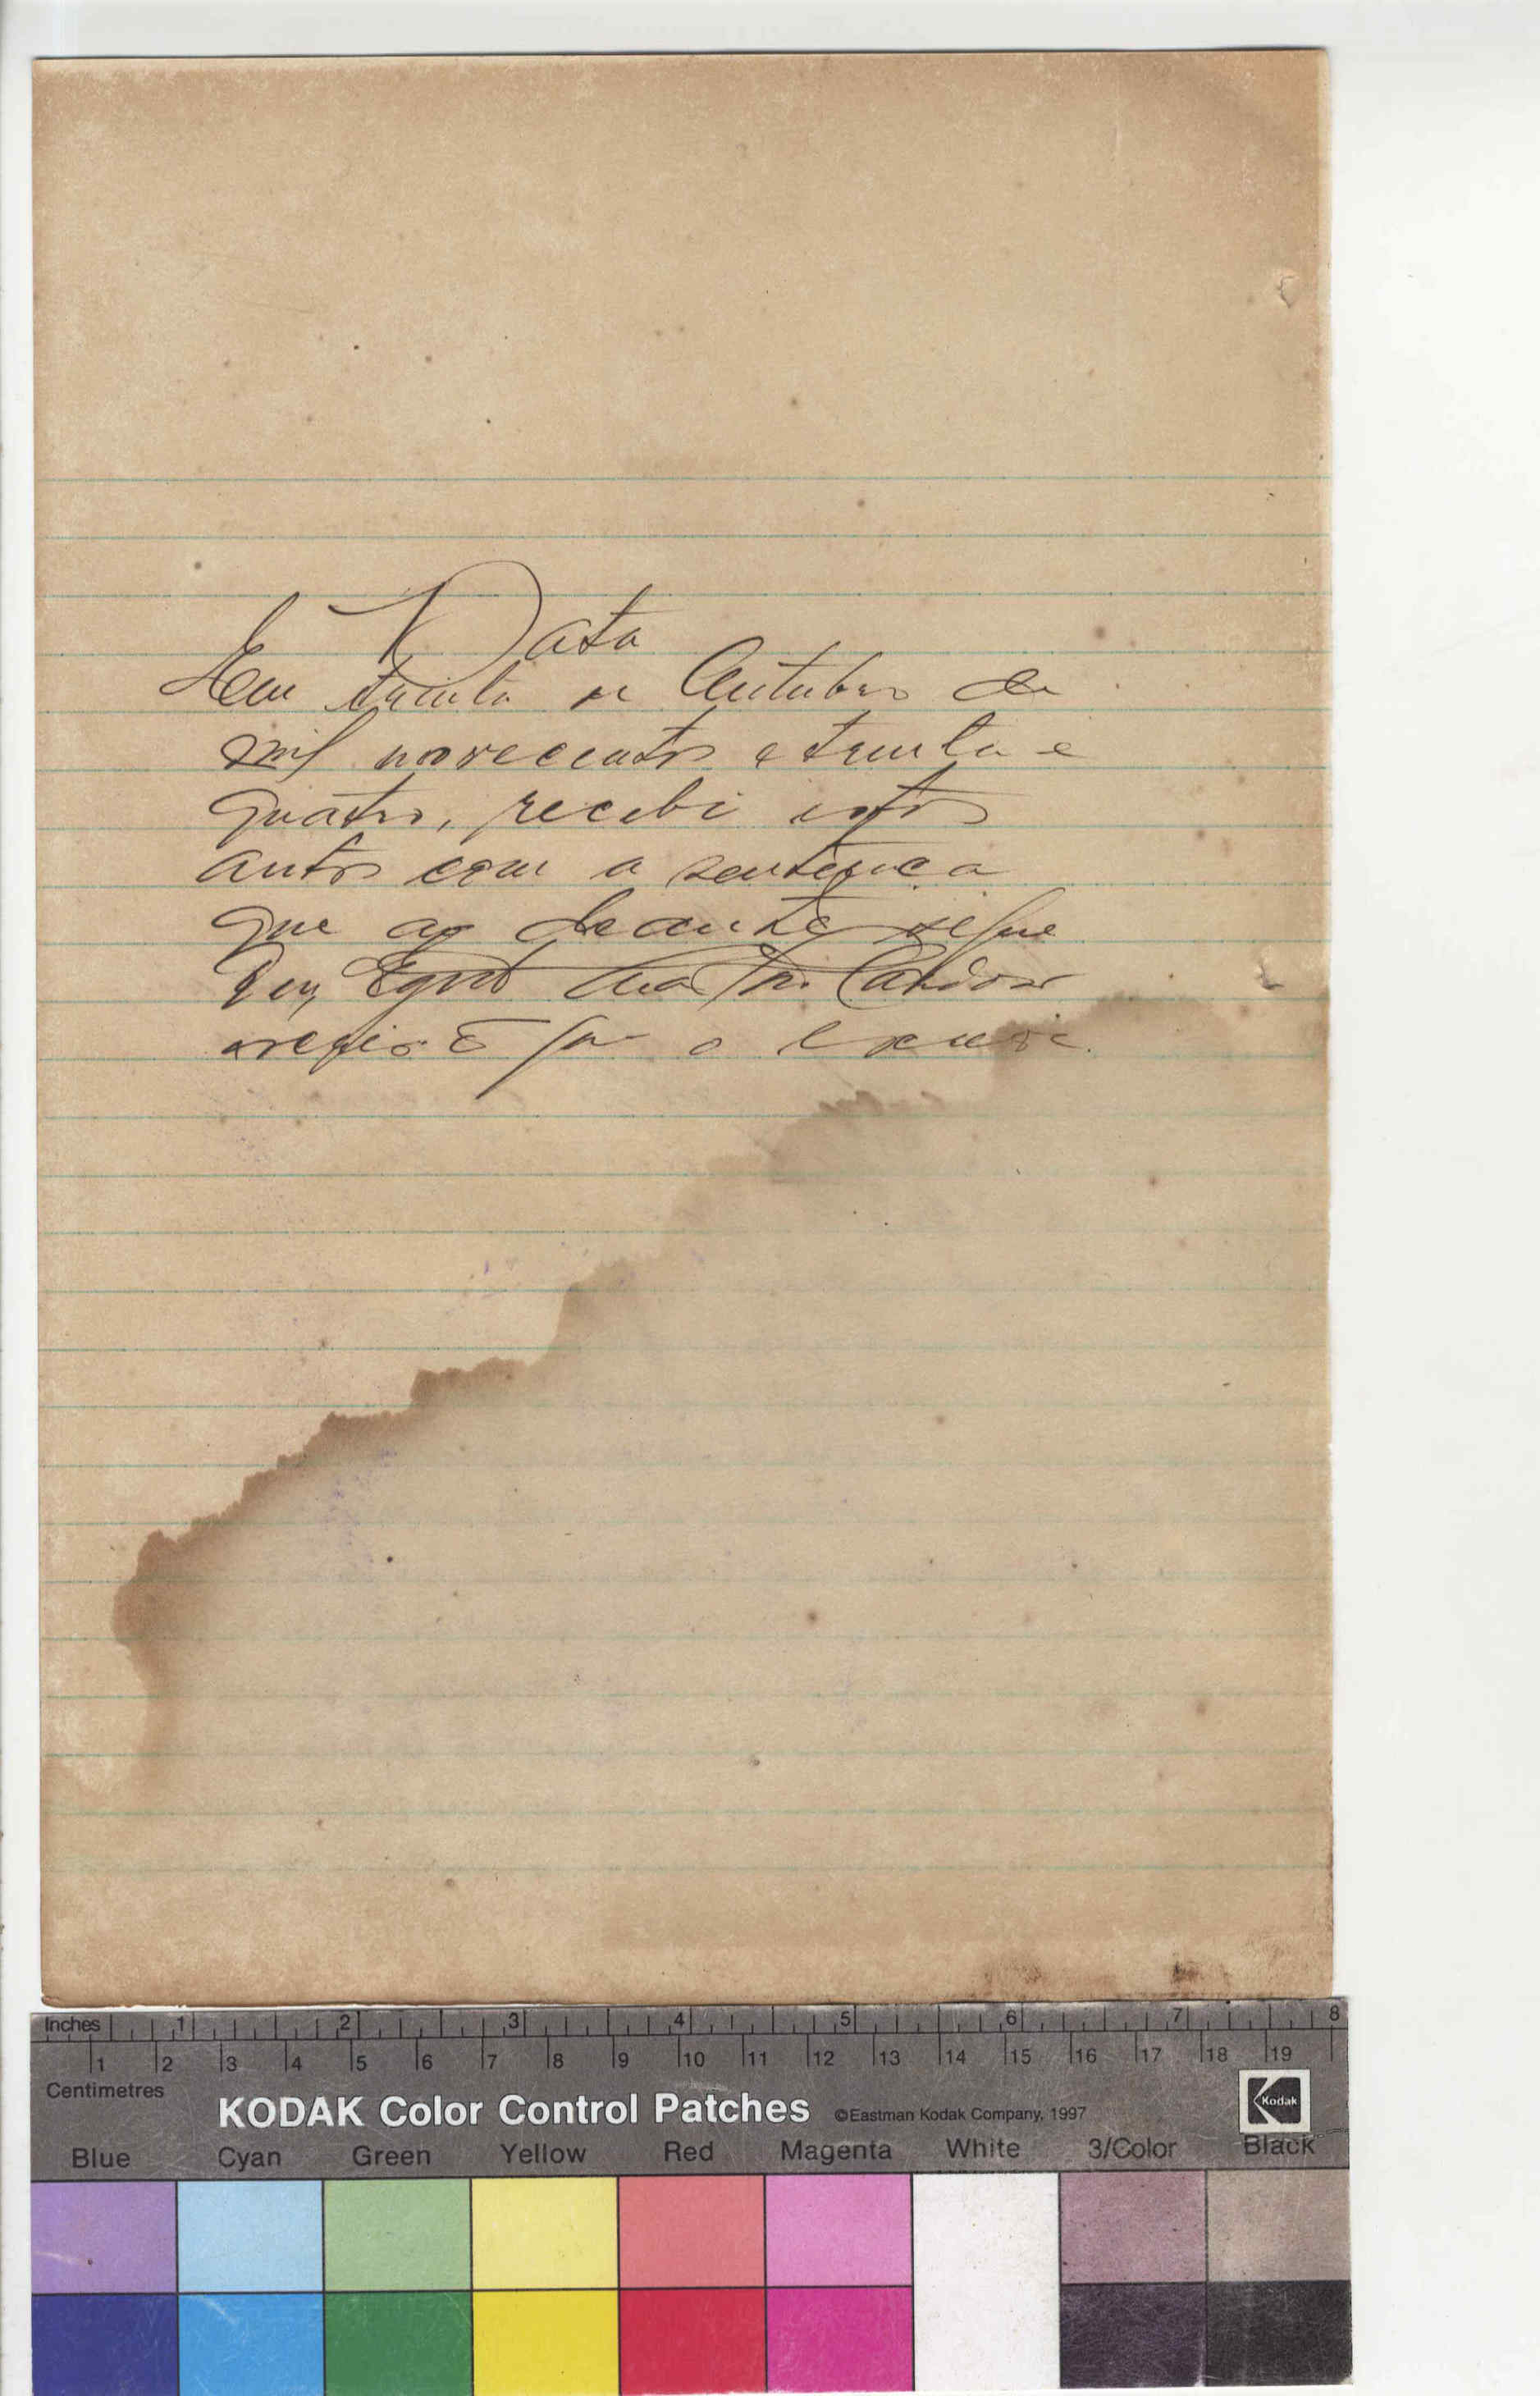 Data
Em trinta de Outubro de
mil novecentos e trinta e
quatro, recebi estes
autos com a sentença
que ao deante segue
Eu, Cardoso
escrivão que o escrevi.
Inches 1 2 3 4 5 6 7 8
1 2 3 4 5 6 7 8 9 10 11 12 13 14 15 16 17 18 19
Centimetres
KODAK Color Control Patches ©Eastman Kodak Company, 1997 Kodak
Blue Cyan Green Yellow Red Magenta White 3/Color Black